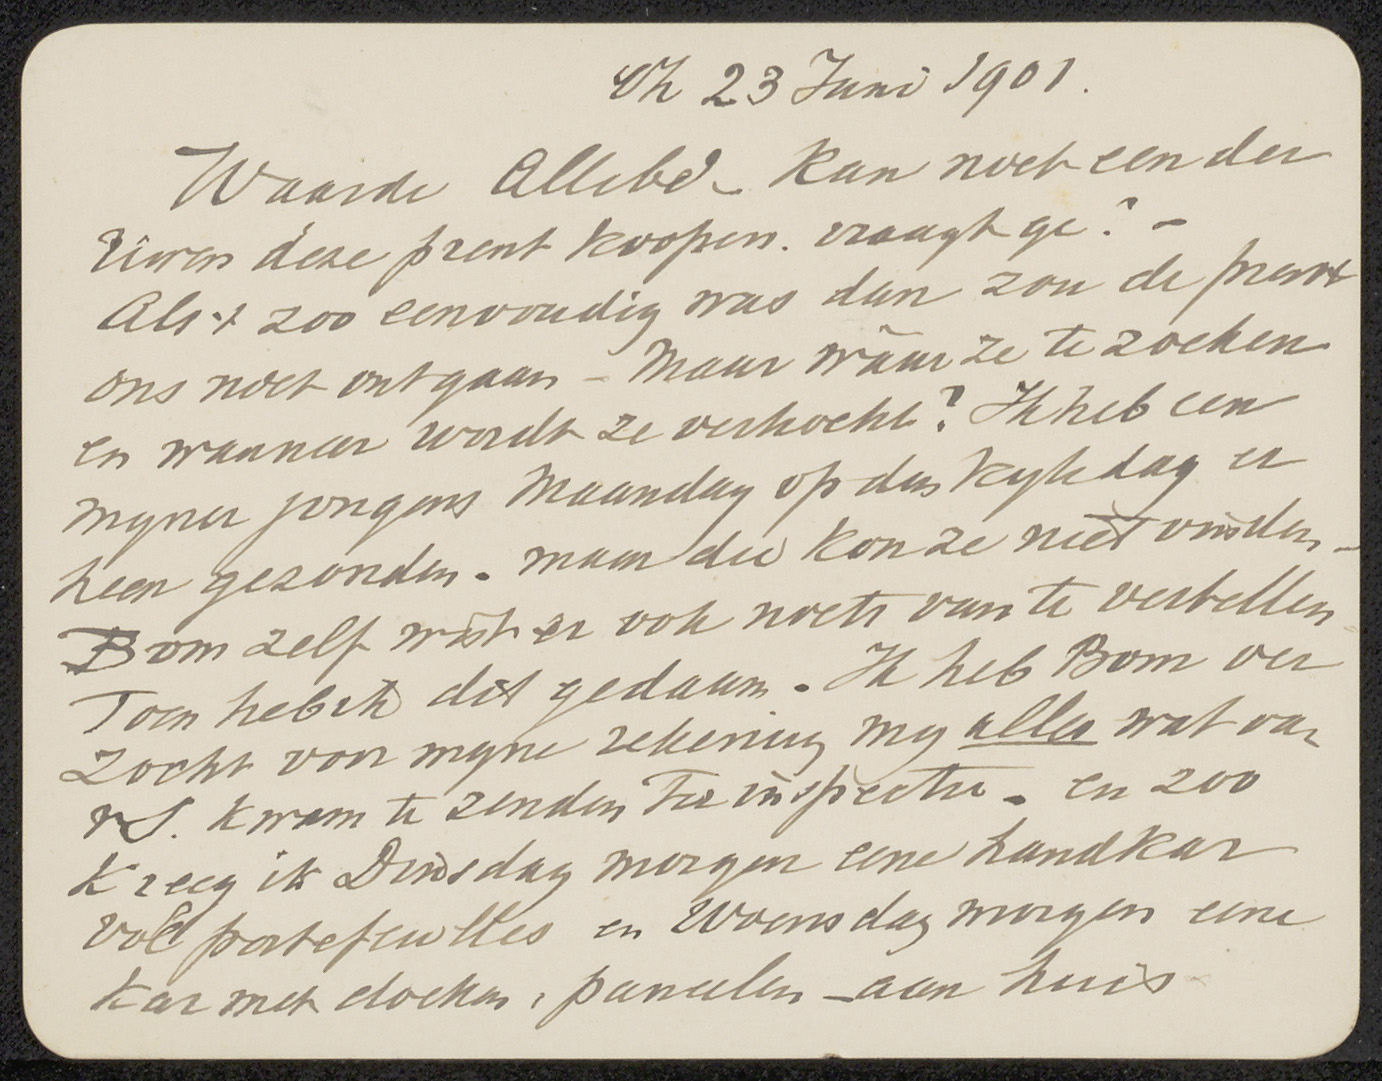 23 Juni 1901.
Waarde Allebé – Kan niet een der
Uwen deze prent koopen. vraagt ge? –
Als 't zoo eenvoudig was dan zou de prent
ons niet ontgaan – Maar wáár ze te zoeken
en wanneer wordt ze verkocht? Ik heb een
mijner jongens Maandag op den kijkdag er
heen gezonden. maar die kon ze niet vinden –
Bom zelf wist er ook niets van te vertellen
Toen heb ik dit gedaan. Ik heb Bom ver
zocht voor mijne rekening mij alles wat van
kwam te zenden ter inspectie. en zoo
kreeg ik Dinsdag morgen eene handkar
vol portefeuilles en Woensdag morgen eene
kar met doeken, paneelen – aan huis